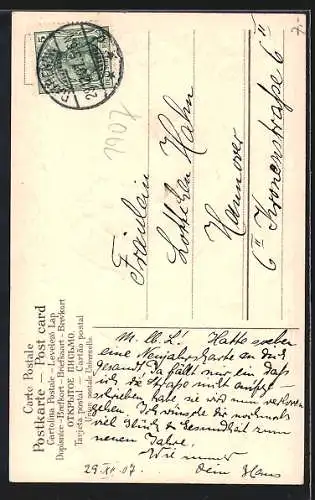 5
HANNOVER
7.-
1907
Fräulein
Lottchen Hahn
Hannover
6 II Kronenstraße 6 II
Carte Postale
Postkarte — Post card
Cartolina Postale - Levelező Lap
Dopisnice - Brefkort - Briefkaart - Brevkort
ОТКРЫТОЕ ПИСЬМО
Tarjeta postal - Cartão postal
Union postale Universelle.
M. lb. L.! Hatte soeben
eine Neujahrskarte an dich
gesandt, da fällt mir ein daß
ich die Straße nicht aufge-
schrieben habe, sie wird nun verloren
gehen. Ich wünsche dir nochmals
viel Glück & Gesundheit zum
neuen Jahre.
Wie immer
29.XII.07. Dein Hans